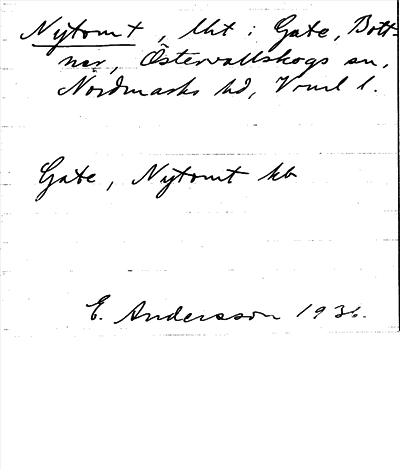 Nytomt, lht i Gate, Bott-
nar, Östervallskogs sn,
Nordmarks hd, Vrml l.
Gate, Nytomt kb
E. Andersson 1936.